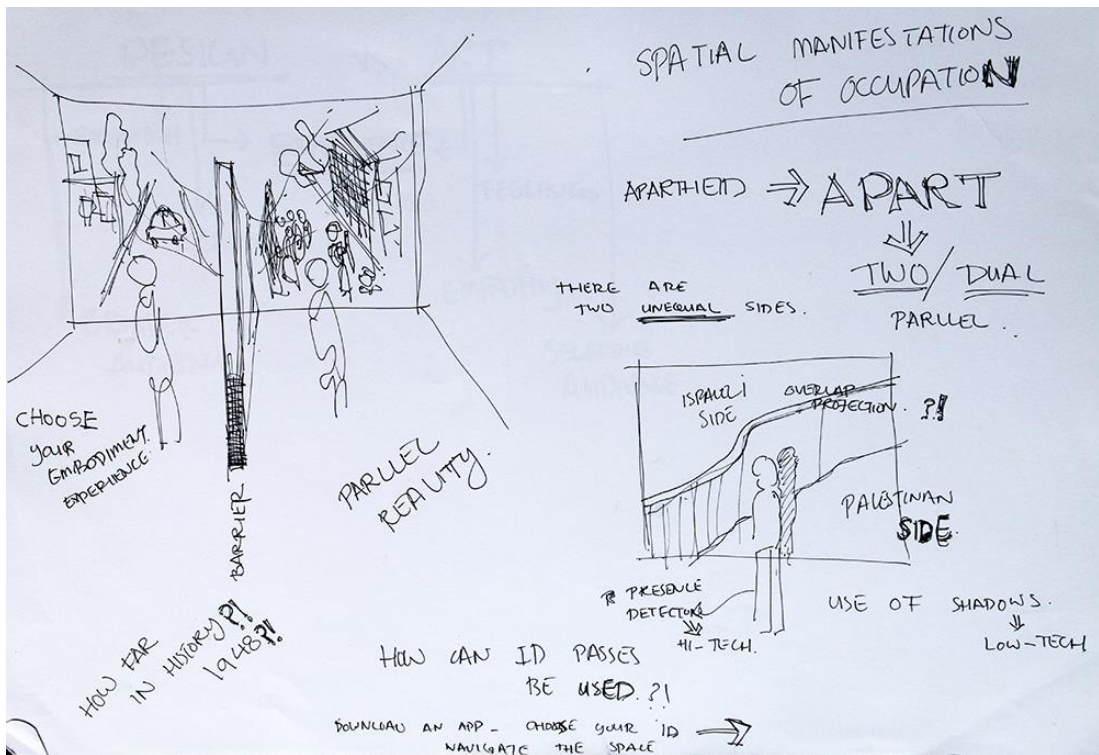 SPATIAL MANIFESTATIONS
OF OCCUPATION
APARTHEID ⇒ APART
⇓
TWO/DUAL
PARLLEL.
THERE ARE
TWO UNEQUAL SIDES.
CHOOSE
YOUR
EMBODIMENT
EXPERIENCE.
BARRIER
PARLLEL
REALITY.
HOW FAR
IN HISTORY?!
1948?!
ISRAELI
SIDE
OVERLAP
PROJECTION. ?!
PALESTINAN
SIDE.
PRESENCE
DETECTORS
⇓
HI-TECH.
USE OF SHADOWS.
⇓
LOW-TECH
HOW CAN ID PASSES
BE USED.?!
DOWNLOAD AN APP - CHOOSE YOUR ID →
NAVIGATE THE SPACE